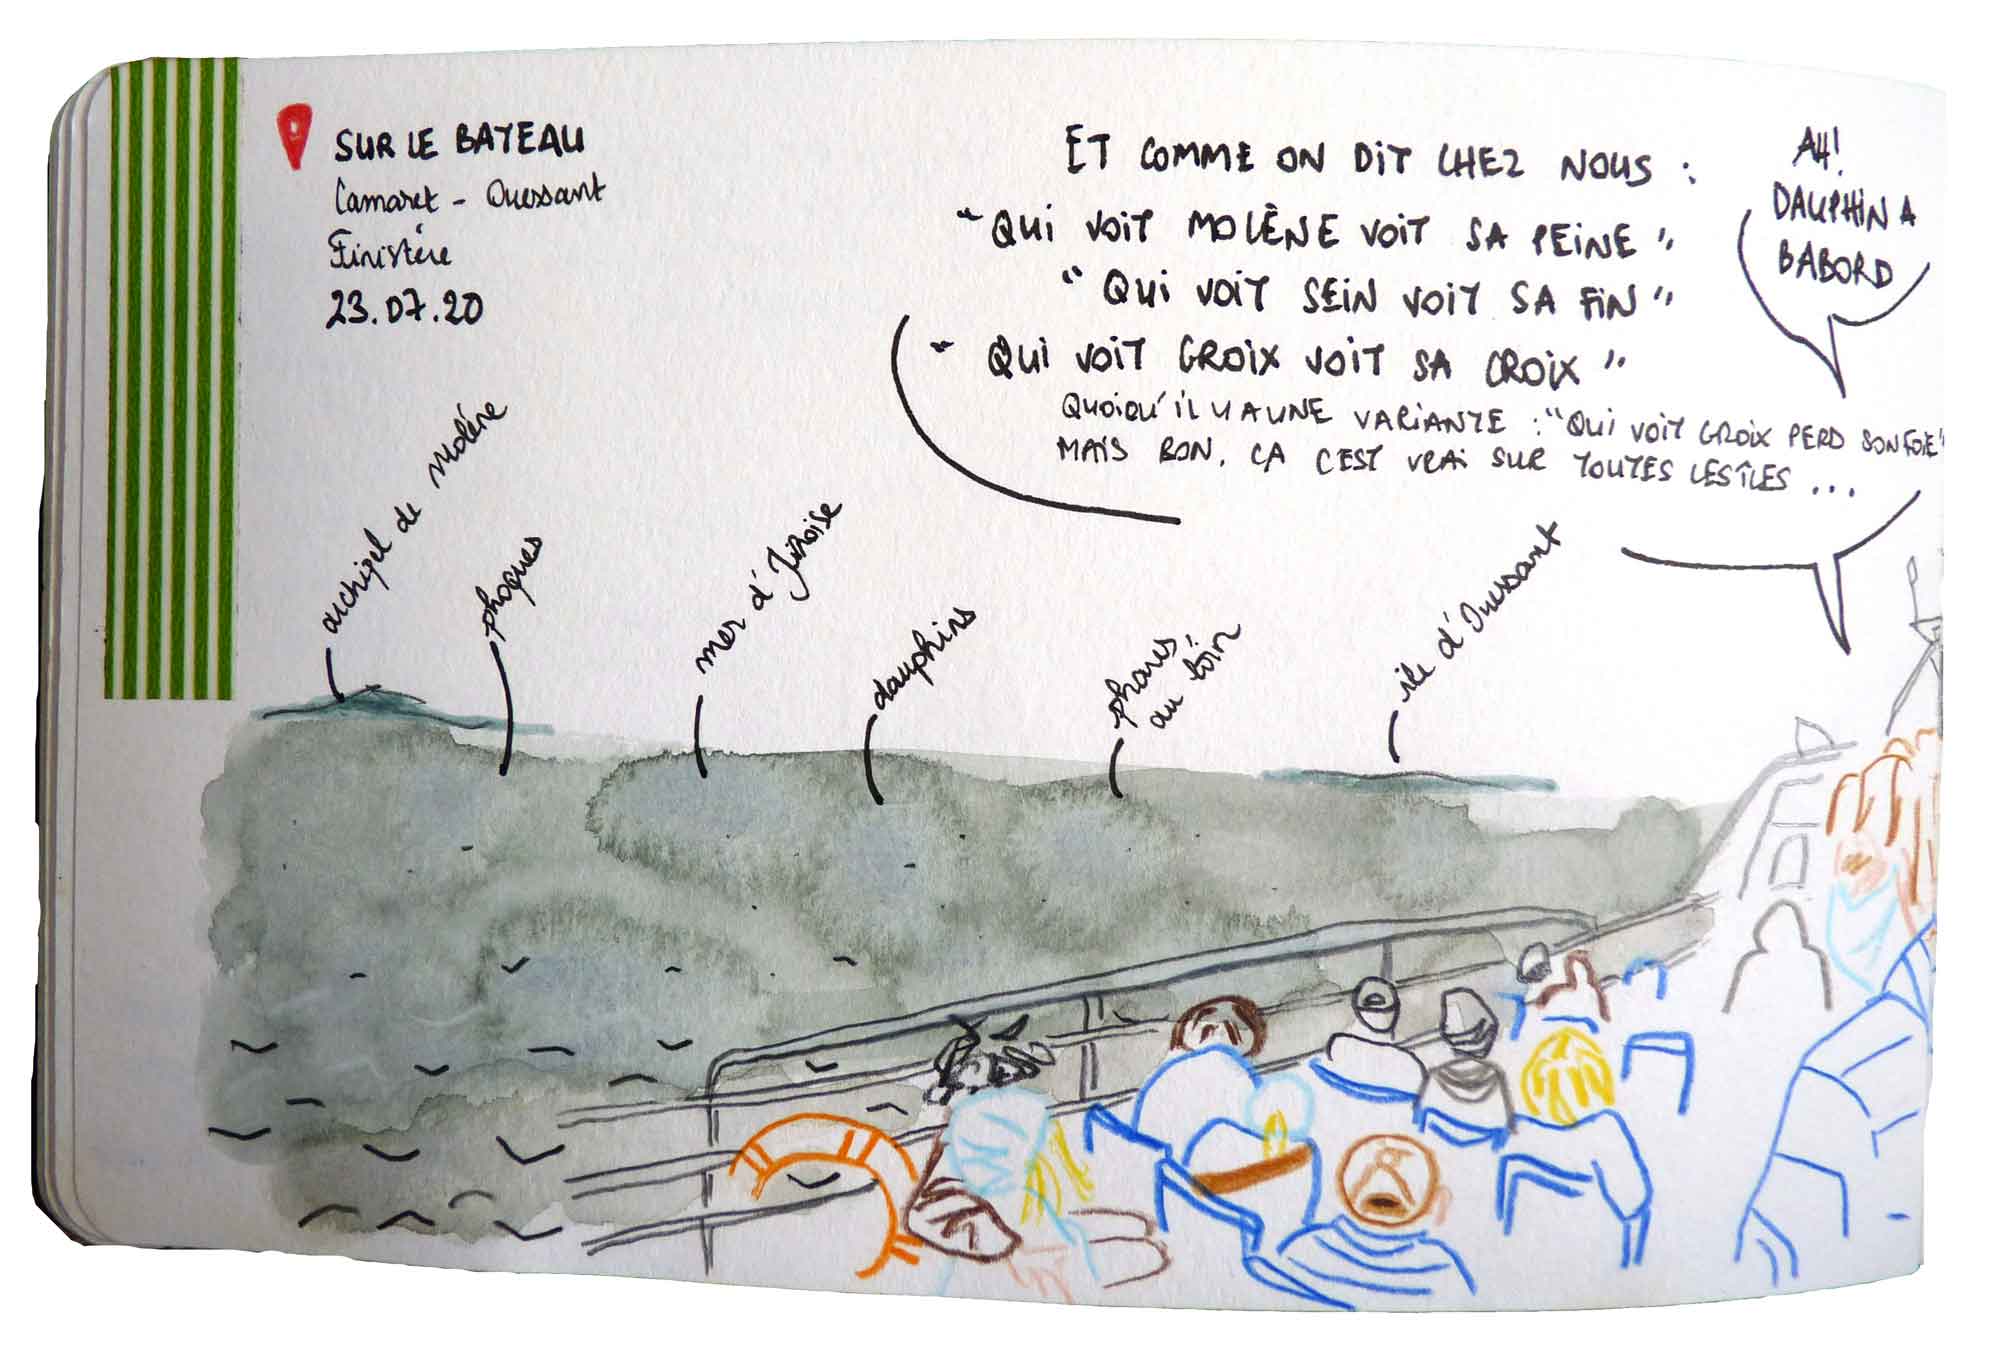 SUR LE BATEAU
Camaret - Ouessant
Finistère
23.07.20
ET COMME ON DIT CHEZ NOUS :
"QUI VOIT MOLÈNE VOIT SA PEINE"
"QUI VOIT SEIN VOIT SA FIN"
"QUI VOIT GROIX VOIT SA CROIX"
QUOIQU'IL Y A UNE VARIANTE : "QUI VOIT GROIX PERD SON FOIE"
MAIS BON, CA C'EST VRAI SUR TOUTES LES ÎLES ...
AH!
DAUPHIN A
BABORD
archipel de Molène
phoques
mer d'Iroise
dauphins
phares
au loin
île d'Ouessant